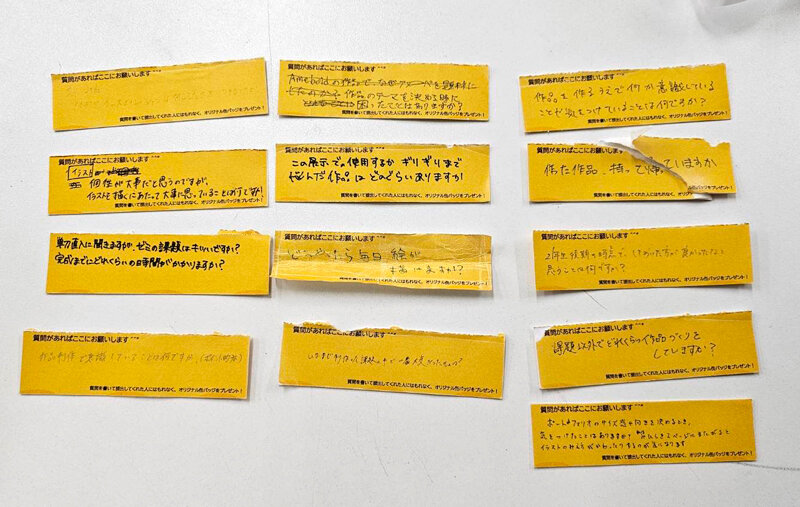 質問があればここにお願いします
質問を書いて提出してくれた人にはもれなく、オリジナル缶バッジをプレゼント!
質問があればここにお願いします
イラスト
個性が大事だと思うのですが、
イラストを描くにあたって大事に思っていることは何ですか!
質問を書いて提出してくれた人にはもれなく、オリジナル缶バッジをプレゼント!
単刀直入に聞きますが、ゼミの課題はキツいですか?
完成までにどれくらいの時間がかかりますか?
質問があればここにお願いします
作品制作で意識していることは何ですか
質問を書いて提出してくれた人にはもれなく、オリジナル缶バッジをプレゼント!
質問があればここにお願いします
作品のテーマを決める時に
困ったことはありますか?
質問を書いて提出してくれた人にはもれなく、オリジナル缶バッジをプレゼント!
この展示で使用するか ギリギリまで
悩んだ作品は どのぐらいありますか
質問を書いて提出してくれた人にはもれなく、オリジナル缶バッジをプレゼント!
質問があればここにお願いします
どうやったら毎日 絵が
描けますか?
質問があればここにお願いします
質問を書いて提出してくれた人にはもれなく、オリジナル缶バッジをプレゼント!
質問があればここにお願いします
作品を作るうえで何か意識している
ことや気をつけていることは何ですか?
質問を書いて提出してくれた人にはもれなく、オリジナル缶バッジをプレゼント!
質問があればここにお願いします
作った作品、持って帰っていますか
質問があればここにお願いします
2年生後期の時点で、しておいた方が良かったなと
思うことは何ですか?
質問を書いて提出してくれた人にはもれなく、オリジナル缶バッジをプレゼント!
質問があればここにお願いします
課題以外でどれくらい作品づくりを
していますか?
質問を書いて提出してくれた人にはもれなく、オリジナル缶バッジをプレゼント!
質問があればここにお願いします
ポートフォリオのサイズ感や向きを決めるとき、
気をつけたことはありますか?
イラストのみえ方がかわったりするのが気になります
質問を書いて提出してくれた人にはもれなく、オリジナル缶バッジをプレゼント!